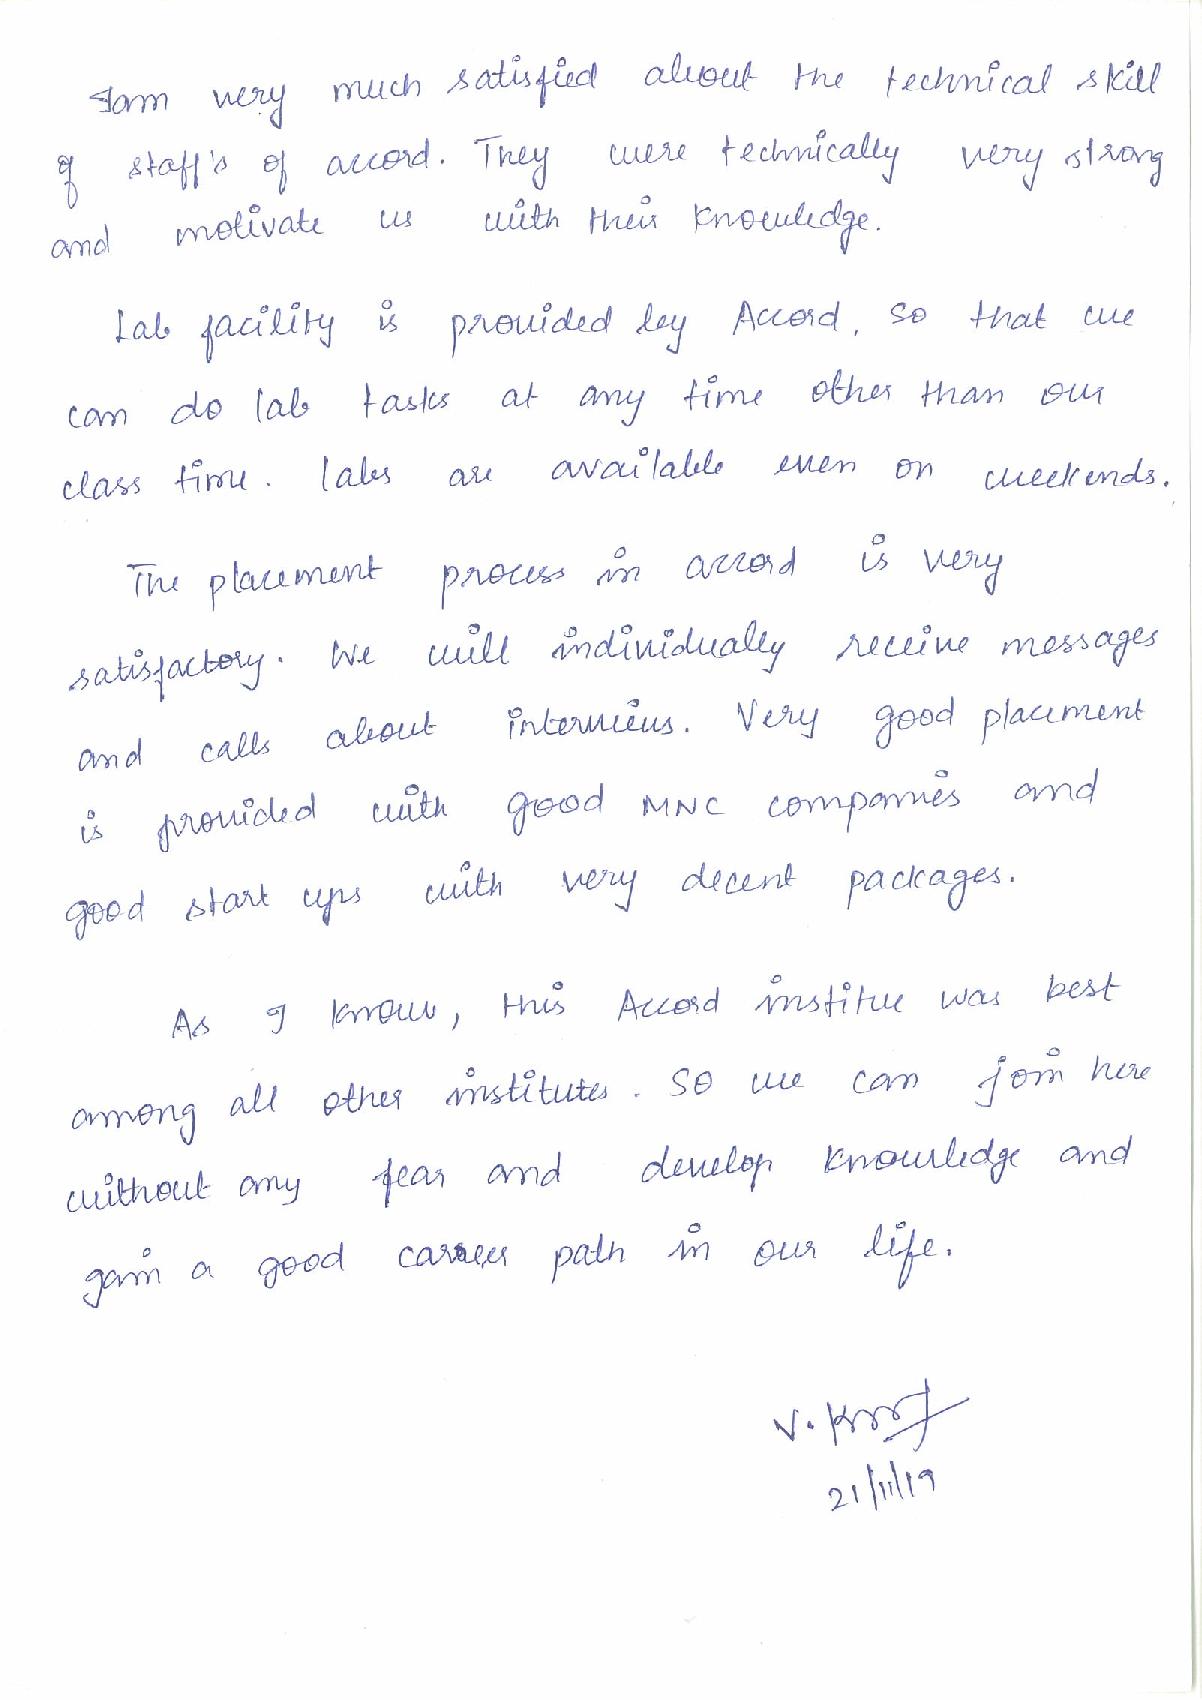 Iam very much satisfied about the technical skill
of staff's of accord. They were technically very strong
and motivate us with their knowledge.
Lab facility is provided by Accord, so that we
can do lab tasks at any time other than our
class time. labs are available even on weekends.
The placement process in accord is very
satisfactory. We will individually receive messages
and calls about interviews. Very good placement
is provided with good MNC companies and
good start ups with very decent packages.
As I know, this Accord institue was best
among all other institutes. So we can join here
without any fear and develop knowledge and
gain a good career path in our life.
21/11/19